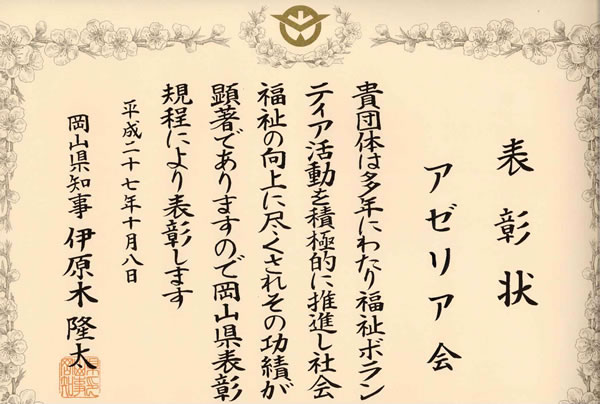 表彰状
アゼリア会
貴団体は多年にわたり福祉ボラン
ティア活動を積極的に推進し社会
福祉の向上に尽くされその功績が
顕著でありますので岡山県表彰
規程により表彰します
平成二十七年十月八日
岡山県知事 伊原木隆太